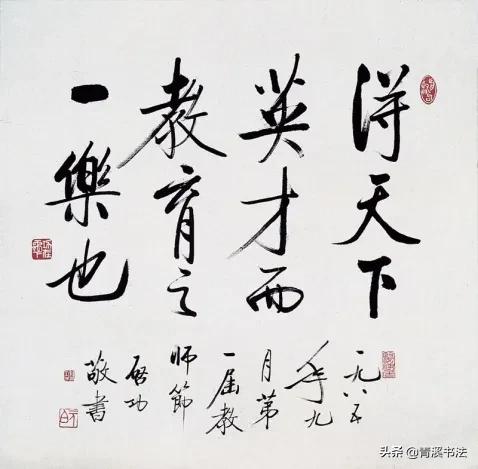 得天下
英才而
教育之
一樂也
一九八五
年九
月第
一届教
師節
启功
敬書
头条 @青溪书法